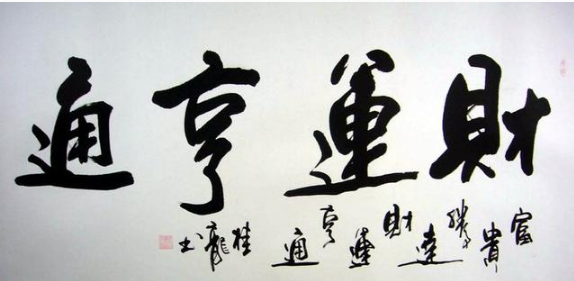 財運亨通
富貴騰達財運亨通
桂龍書